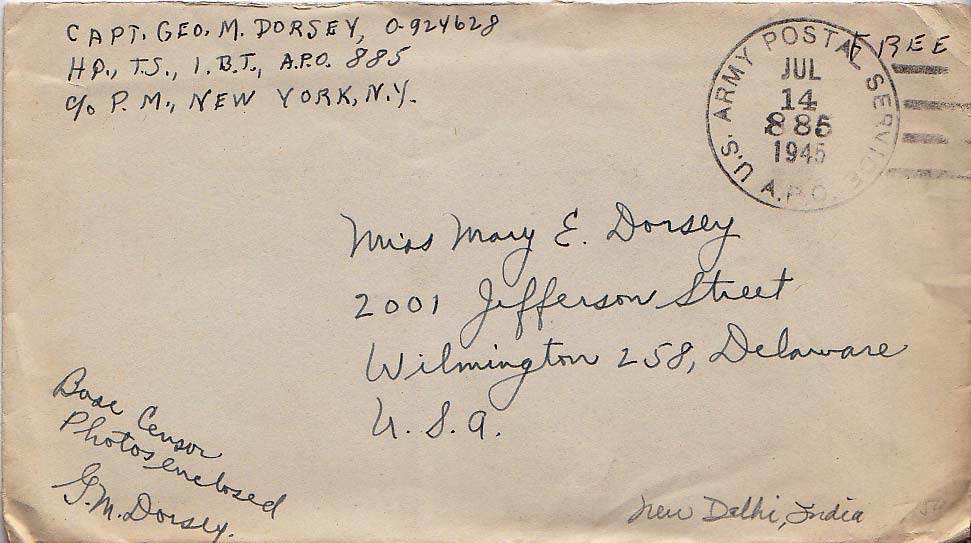 CAPT. GEO. M. DORSEY, O-924628
HD., T.S., I.B.T., A.P.O. 885
c/o P.M., NEW YORK, N.Y.
FREE
U.S. ARMY POSTAL SERVICE
JUL
14
885
1945
A.P.O.
Miss Mary E. Dorsey
2001 Jefferson Street
Wilmington 258, Delaware
U. S. A.
Base Censor
Photos enclosed
G.M. Dorsey.
New Delhi, India